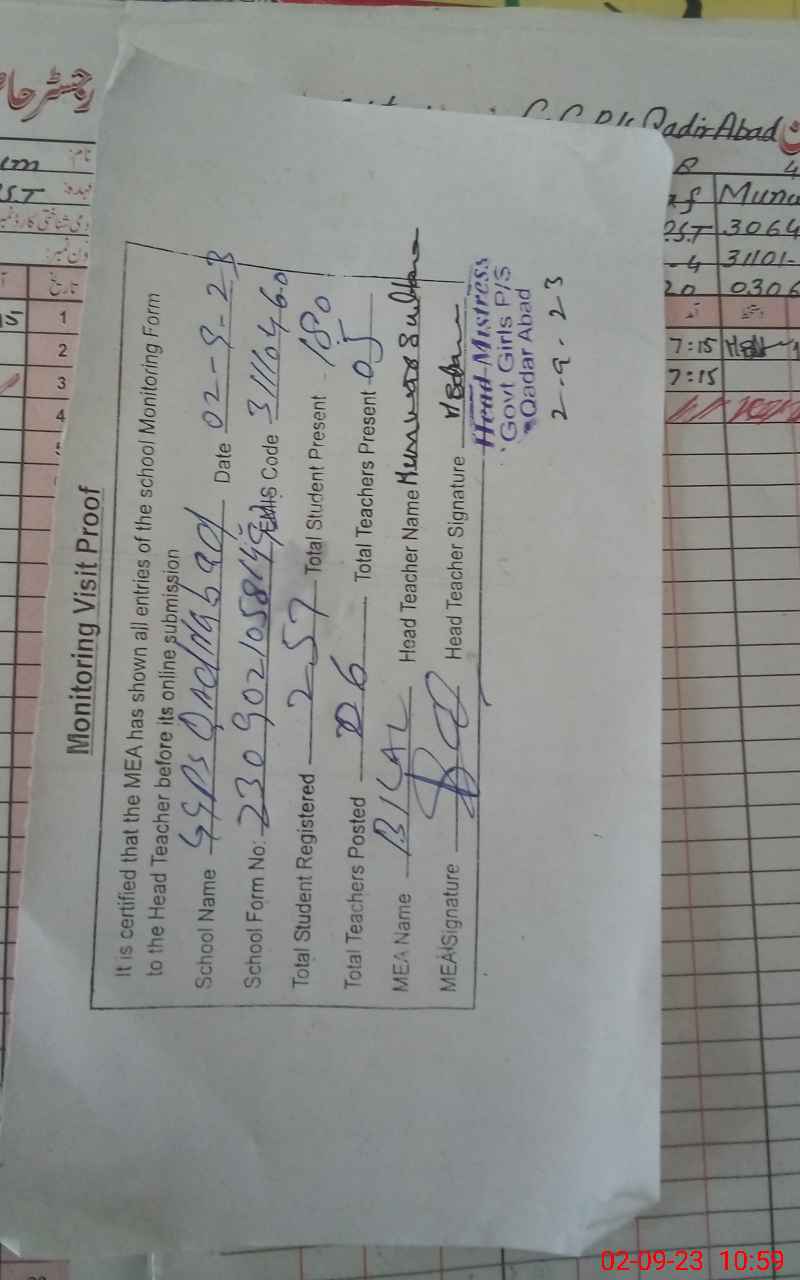 Monitoring Visit Proof
It is certified that the MEA has shown all entries of the school Monitoring Form
to the Head Teacher before its online submission
School Name GGPS Qadirabad Date 02-9-23
School Form No: EMIS Code 31110460
Total Student Registered 257 Total Student Present 180
Total Teachers Posted 06 Total Teachers Present 05
MEA Name BILAL Head Teacher Name Munawar Sultana
MEA Signature Head Teacher Signature
Head Mistress
Govt Girls P/S
Qadar Abad
2-9-23
رجسٹر حا
نام:
عہدہ:
تاریخ
1
2
3
4
Qadir Abad
P.S.T 3064
-4 31101-
20 0306
7:15
7:15
02-09-23 10:59